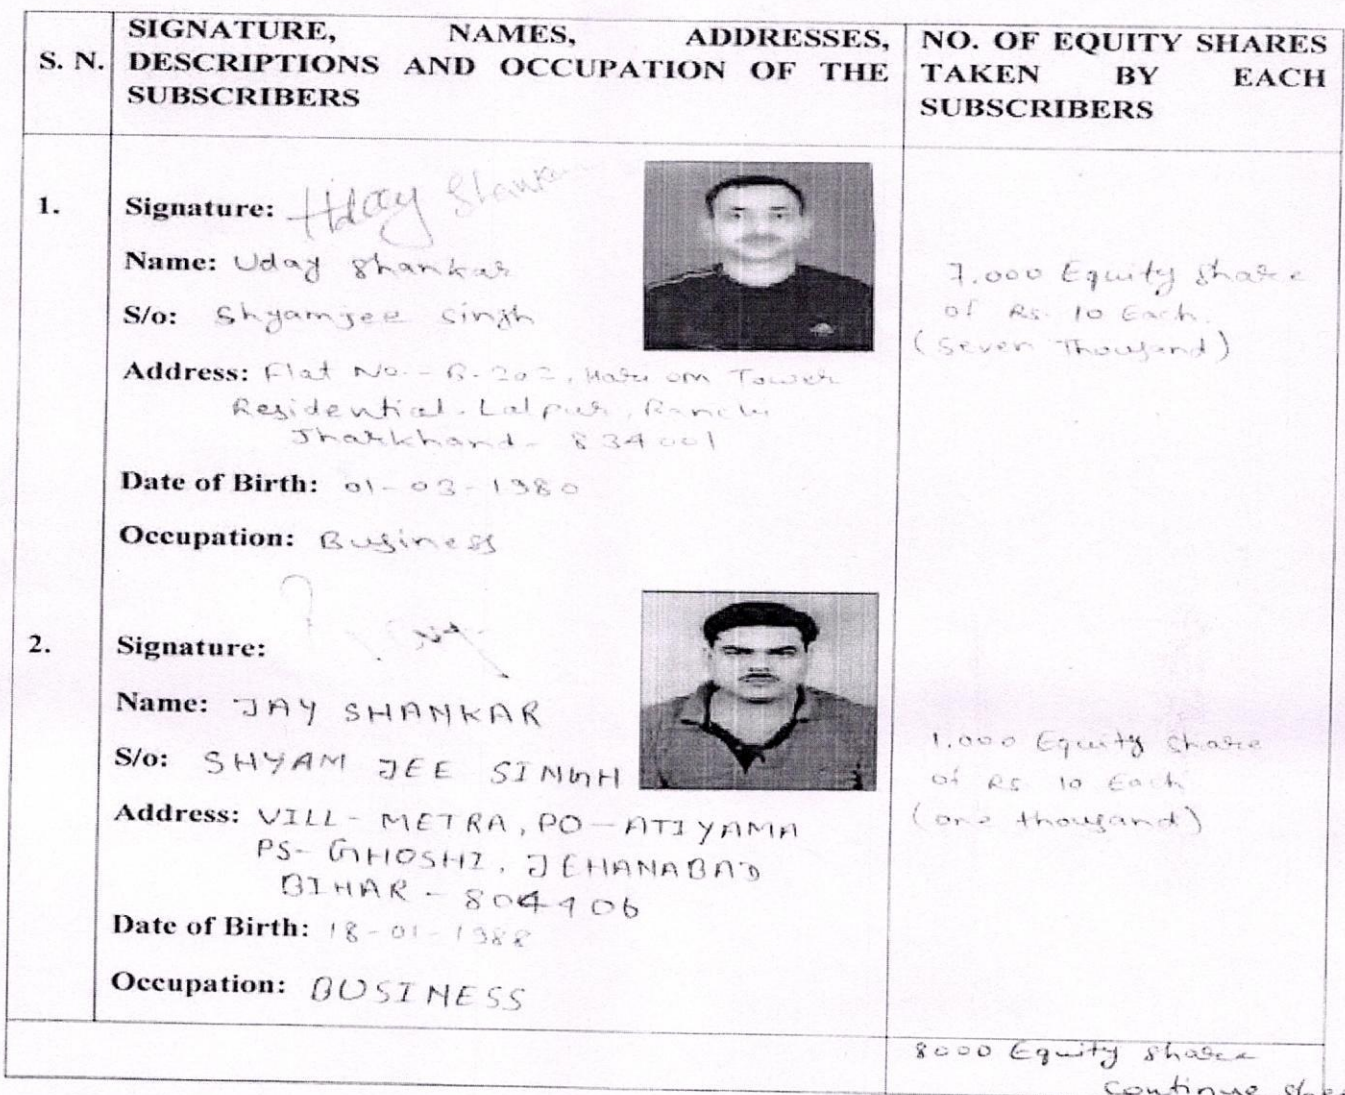 S. N.
SIGNATURE, NAMES, ADDRESSES,
DESCRIPTIONS AND OCCUPATION OF THE
SUBSCRIBERS
NO. OF EQUITY SHARES
TAKEN BY EACH
SUBSCRIBERS
1.
Signature: Uday Shankar
Name: Uday Shankar
S/o: Shyamjee Singh
Address: Flat No.- B-202, Hari om Tower
Residential. Lalpur, Ranchi
Jharkhand- 834001
Date of Birth: 01-03-1980
Occupation: Business
7,000 Equity Share
of Rs. 10 Each.
(Seven Thousand)
2.
Signature:
Name: JAY SHANKAR
S/o: SHYAM JEE SINGH
Address: VILL- METRA, PO-ATIYAMA
PS- GHOSHI, JEHANABAD
BIHAR - 804406
Date of Birth: 18-01-1988
Occupation: BUSINESS
1,000 Equity Share
of Rs 10 Each
(one thousand)
8000 Equity Share
continue